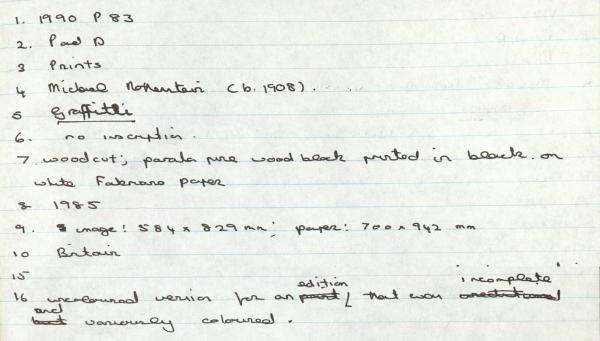 1. 1990 P 83
2. P and D
3 Prints
4 Michael Rothenstein (b. 1908).
5 Graffitti
6. no inscription.
7 woodcut; parala pine wood block printed in black on
white Fabriano paper
8 1985
9. image: 584 x 829 mm; paper: 700 x 942 mm
10 Britain
15
edition incomplete
16 uncoloured version for an that was
and
variously coloured.